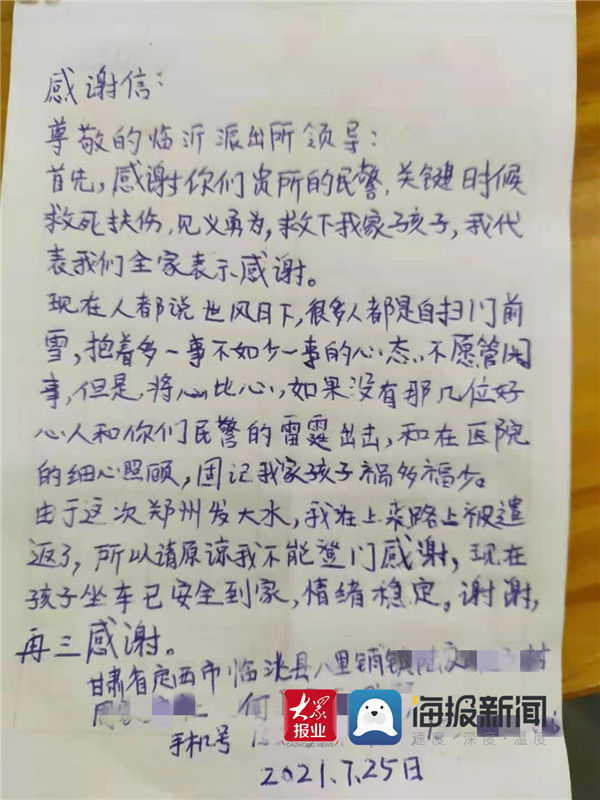 感谢信:
尊敬的临沂派出所领导:
首先,感谢你们贵所的民警,关键时候
救死扶伤,见义勇为,救下我家孩子,我代
表我们全家表示感谢。
现在人都说世风日下,很多人都是自扫门前
雪,抱着多一事不如少一事的心态,不愿管闲
事,但是将心比心,如果没有那几位好
心人和你们民警的雷霆出击,和在医院
的细心照顾,固记我家孩子祸多福少。
由于这次郑州发大水,我在上来路上被遣
返了,所以请原谅我不能登门感谢,现在
孩子坐车已安全到家,情绪稳定。谢谢,
再三感谢。
甘肃省定西市临洮县八里铺镇 村
周家 何
手机号
2021.7.25日
大众报业
DAZHONG NEWS
海报新闻
速度·深度·温度